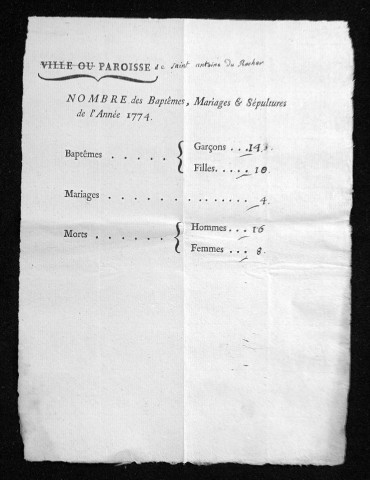 VILLE OU PAROISSE de saint antoine Du Rocher
NOMBRE des Baptêmes, Mariages & Sépultures
de l'Année 1774.
Baptêmes . . . . . { Garçons . . . 14.
Filles. . . . . 10.
Mariages . . . . . . . . . . . . . . . 4.
Morts . . . . . . { Hommes . . . 16
Femmes . . . 8.